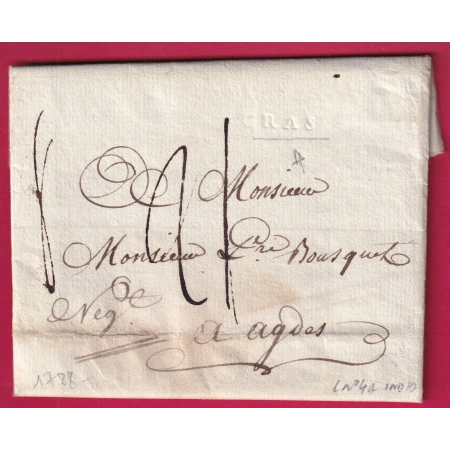 GRAS
A
Monsieur
Monsieur Pre Bousquet
Negt
a agdes
1788
LN°4A